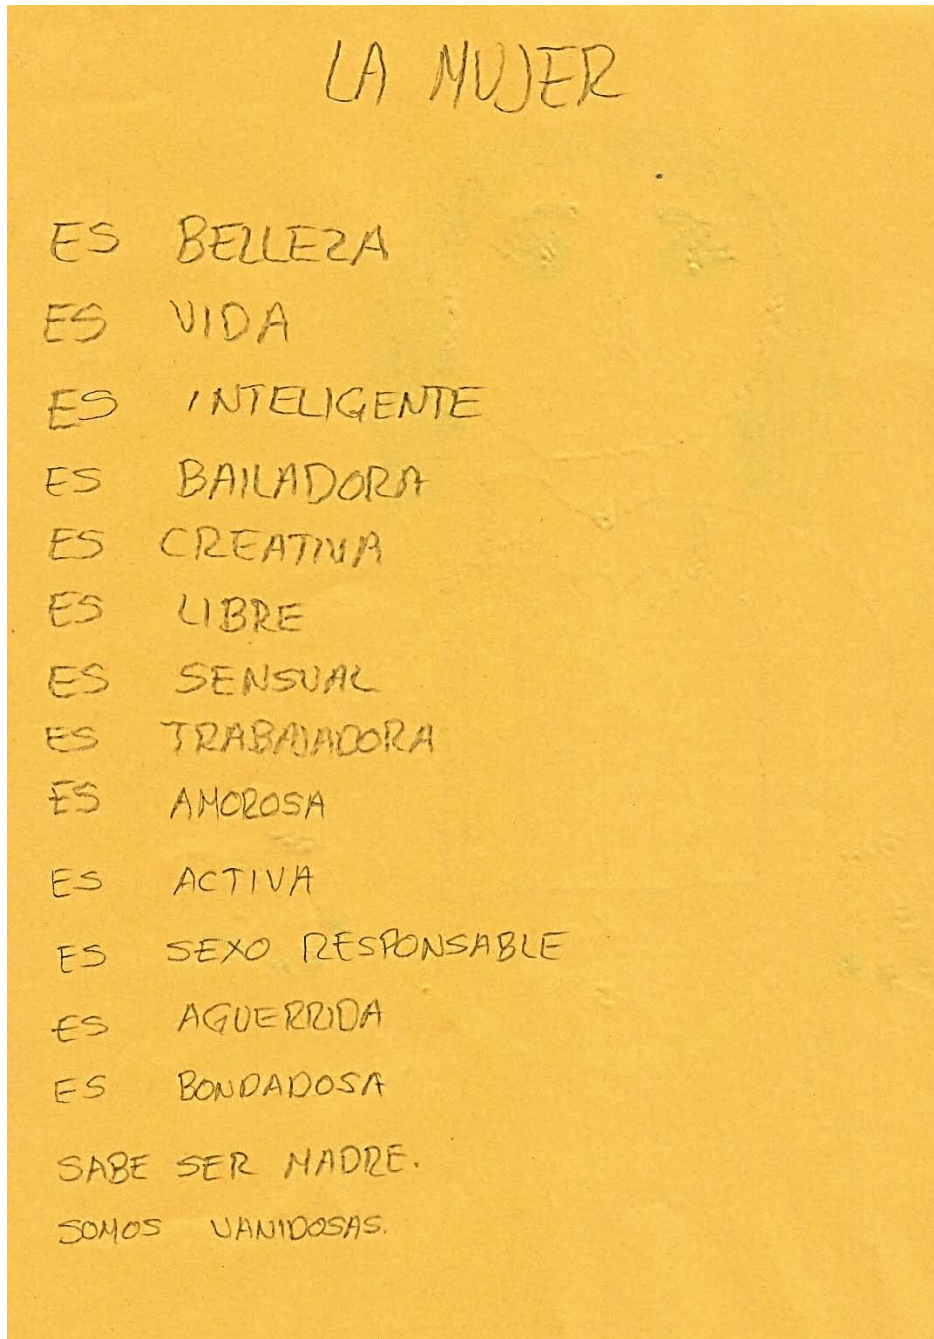 LA MUJER
ES BELLEZA
ES VIDA
ES INTELIGENTE
ES BAILADORA
ES CREATIVA
ES LIBRE
ES SENSUAL
ES TRABAJADORA
ES AMOROSA
ES ACTIVA
ES SEXO RESPONSABLE
ES AGUERRIDA
ES BONDADOSA
SABE SER MADRE.
SOMOS VANIDOSAS.